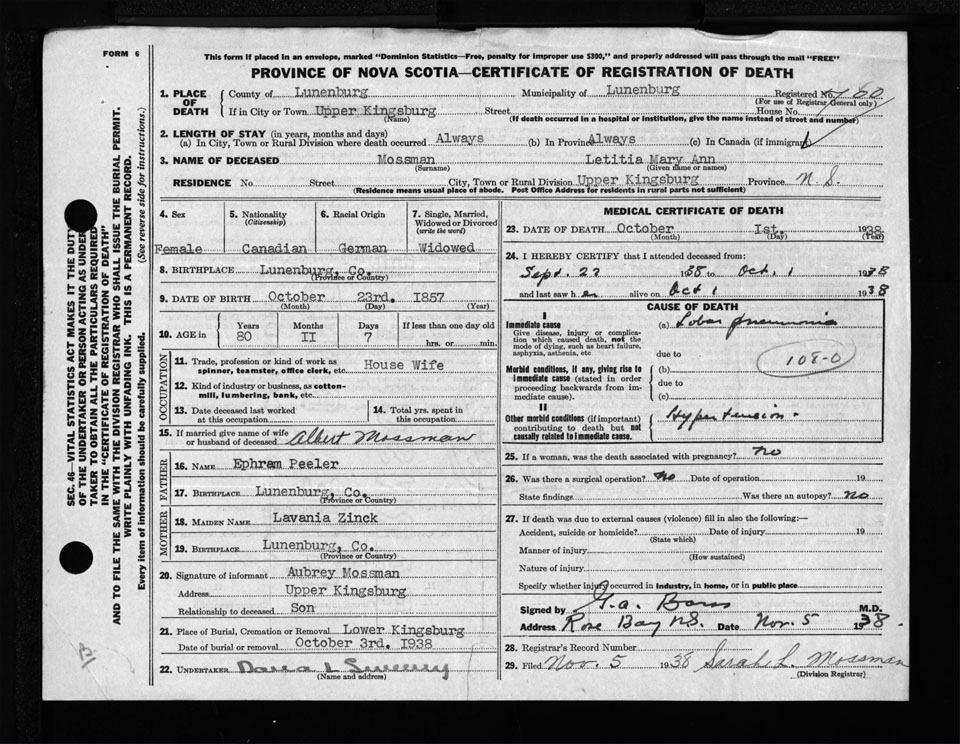 FORM 6
This form if placed in an envelope, marked "Dominion Statistics—Free, penalty for improper use $300," and properly addressed will pass through the mail "FREE"
PROVINCE OF NOVA SCOTIA—CERTIFICATE OF REGISTRATION OF DEATH
1. PLACE OF DEATH
County of Lunenburg Municipality of Lunenburg Registered No. 160
(For use of Registrar General only)
If in City or Town Upper Kingsburg Street House No.
(Name) (If death occurred in a hospital or institution, give the name instead of street and number)
2. LENGTH OF STAY (in years, months and days)
(a) In City, Town or Rural Division where death occurred Always (b) In Province Always (c) In Canada (if immigrant)
3. NAME OF DECEASED Mossman Letitia Mary Ann
(Surname) (Given name or names)
RESIDENCE No. Street City, Town or Rural Division Upper Kingsburg Province N.S.
(Residence means usual place of abode. Post Office Address for residents in rural parts not sufficient)
4. Sex
Female
5. Nationality
(Citizenship)
Canadian
6. Racial Origin
German
7. Single, Married, Widowed or Divorced
(write the word)
Widowed
8. BIRTHPLACE Lunenburg, Co.
(Province or Country)
9. DATE OF BIRTH October 23rd. I857
(Month) (Day) (Year)
10. AGE in
Years Months Days If less than one day old
80 II 7 hrs. or min.
OCCUPATION
11. Trade, profession or kind of work as
spinner, teamster, office clerk, etc. House Wife
12. Kind of industry or business, as cotton-
mill, lumbering, bank, etc.
13. Date deceased last worked
at this occupation
14. Total yrs. spent in
this occupation
15. If married give name of wife
or husband of deceased Albert Mossman
FATHER
16. NAME Ephram Peeler
17. BIRTHPLACE Lunenburg, Co.
(Province or Country)
MOTHER
18. MAIDEN NAME Lavania Zinck
19. BIRTHPLACE Lunenburg, Co.
(Province or Country)
20. Signature of informant Aubrey Mossman
Address Upper Kingsburg
Relationship to deceased Son
21. Place of Burial, Cremation or Removal Lower Kingsburg
Date of burial or removal October 3rd. I938
22. UNDERTAKER
(Name and address)
MEDICAL CERTIFICATE OF DEATH
23. DATE OF DEATH October Ist. 1938
(Month) (Day) (Year)
24. I HEREBY CERTIFY that I attended deceased from:
Sept. 27 1938 to Oct. 1 1938
and last saw her alive on Oct 1 1938
CAUSE OF DEATH
I
Immediate cause (a) Lobar pneumonia
Give disease, injury or complica-
tion which caused death, not the
mode of dying, such as heart failure,
asphyxia, asthenia, etc
due to
108-0
Morbid conditions, if any, giving rise to
immediate cause (stated in order
proceeding backwards from im-
mediate cause).
(b)
due to
(c)
II
Other morbid conditions (if important)
contributing to death but not
causally related to immediate cause.
Hypertension.
25. If a woman, was the death associated with pregnancy? no
26. Was there a surgical operation? No Date of operation 19
State findings Was there an autopsy? No
27. If death was due to external causes (violence) fill in also the following:—
Accident, suicide or homicide? Date of injury 19
(State which)
Manner of injury
(How sustained)
Nature of injury
Specify whether injury occurred in industry, in home, or in public place
Signed by M.D.
Address Rose Bay N.S. Date Nov. 5 1938.
28. Registrar's Record Number
29. Filed Nov. 5 1938 Sarah L. Mossman
(Division Registrar)
SEC. 46—VITAL STATISTICS ACT MAKES IT THE DUTY
OF THE UNDERTAKER OR PERSON ACTING AS UNDER-
TAKER TO OBTAIN ALL THE PARTICULARS REQUIRED
IN THE "CERTIFICATE OF REGISTRATION OF DEATH"
AND TO FILE THE SAME WITH THE DIVISION REGISTRAR WHO SHALL ISSUE THE BURIAL PERMIT.
WRITE PLAINLY WITH UNFADING INK. THIS IS A PERMANENT RECORD.
Every item of information should be carefully supplied. (See reverse side for instructions.)